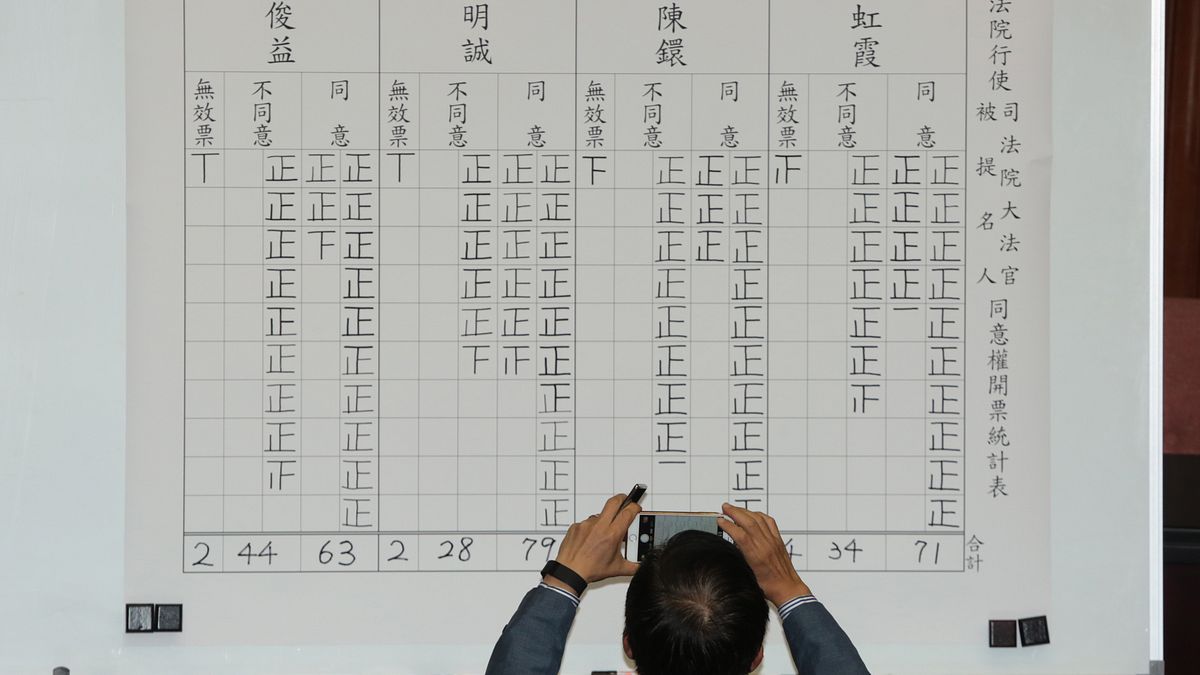 法院行使
司法院大法官
被提名人
同意權開票統計表
虹霞
同意
不同意
無效票
正正正正正正正正正正
正正正正一
正正正正正正
71
34
4
陳鐶
同意
不同意
無效票
正正正正正正正正正正
正正正
正正正正正正正正一
下
明誠
同意
不同意
無效票
正正正正正正正正正正
正正正正正
正正正正正下
丅
79
28
2
俊益
同意
不同意
無效票
正正正正正正正正正正
正正下
正正正正正正正正
丅
63
44
2
合計